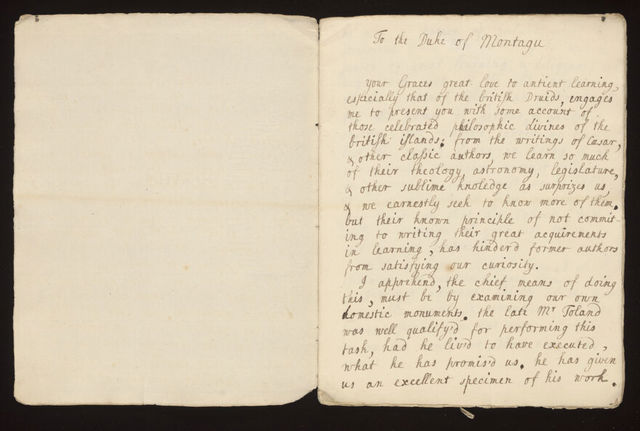 To the Duke of Montagu
your Graces great love to antient learning,
especially that of the british Druids, engages
me to present you with some account of
those celebrated philosophic divines of the
british islands. from the writings of Cæsar,
& other classic authors, we learn so much
of their theology, astronomy, legislature,
& other sublime knoledge as surprizes us,
& we earnestly seek to know more of them.
but their known principle of not commit-
ing to writing their great acquirements
in learning, has hinder'd former authors
from satisfying our curiosity.
I apprehend, the chief means of doing
this, must be by examining our own
domestic monuments. the late Mr Toland
was well qualify'd for performing this
task, had he liv'd to have executed,
what he has promis'd us. he has given
us an excellent specimen of his work.